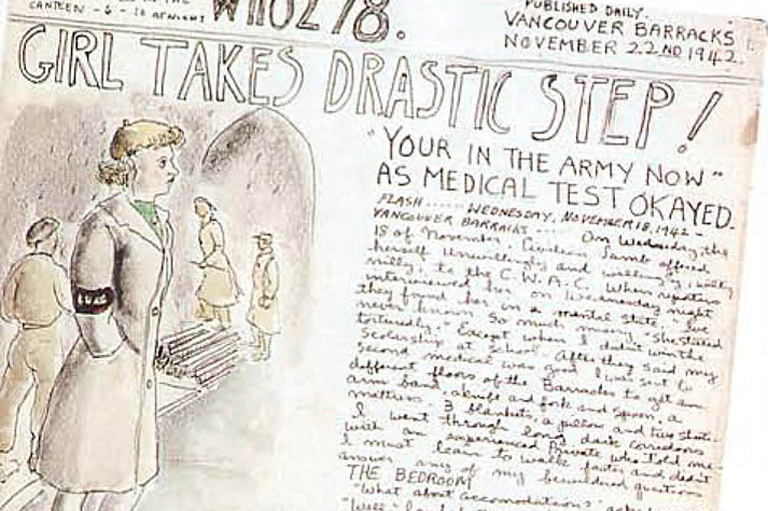 CANTEEN - 6 - 10 AT NIGHT
W110278.
PUBLISHED DAILY.
VANCOUVER BARRACKS
NOVEMBER 22ND 1942.
GIRL TAKES DRASTIC STEP!
"YOUR IN THE ARMY NOW"
AS MEDICAL TEST OKAYED.
FLASH ...... WEDNESDAY, NOVEMBER 18, 1942 -
VANCOUVER BARRACKS ..... On Wednesday, the
18 of November, Gwendlean Lamb offered
herself unwillingly and willingly,
to the C.W.A.C. When reporters
interviewed her on Wednesday night
they found her in a mental state, "I've
never known so much misery" she stated
torturedly. "Except when I didn't win the
Scholarship at School. After they said my
second medical was good I was sent to
different floors of the Barracks to get an
arm band, a knife and fork and spoon, a
mattress, 3 blankets, a pillow and two sheets.
I went through long, dark corridors
with an experienced Private who told me
I must learn to walk faster and didn't
answer any of my bewildered questions
THE BEDROOM
"What about accomodations" asked
"Well"